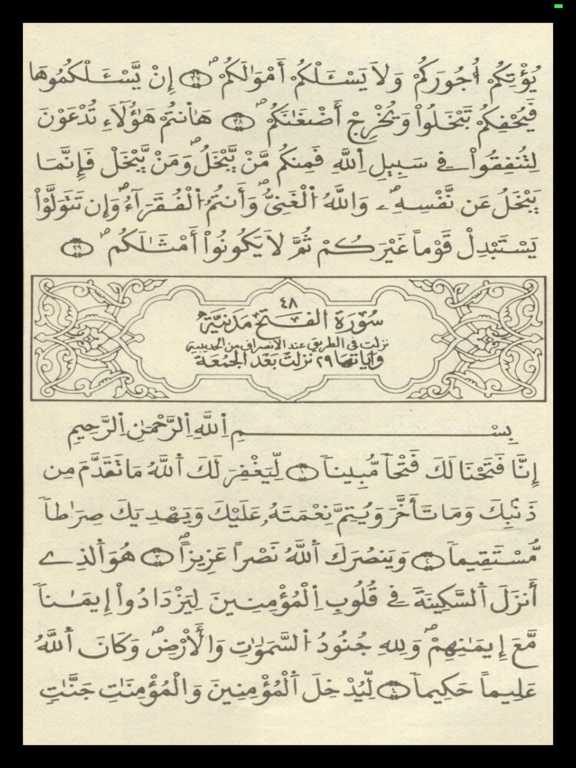 يُؤْتِكُمْ أُجُورَكُمْ وَلَا يَسْـَٔلْكُمْ أَمْوَٰلَكُمْۖ ٣٧ إِنْ يَّسْـَٔلْكُمُوهَا
فَيُحْفِكُمْ تَبْخَلُوا۟ وَيُخْرِجْ أَضْغَـٰنَكُمْۖ ٣٨ هَـٰٓأَنتُمْ هَـٰٓؤُلَآءِ تُدْعَوْنَ
لِتُنفِقُوا۟ فِے سَبِيلِ اِ۬للَّهِ فَمِنكُم مَّنْ يَّبْخَلُۖ وَمَنْ يَّبْخَلْ فَإِنَّمَا
يَبْخَلُ عَن نَّفْسِهِۦۖ وَاللَّهُ اُ۬لْغَنِيُّۖ وَأَنتُمُ اُ۬لْفُقَرَآءُۖ وَإِن تَتَوَلَّوْا۟
يَسْتَبْدِلْ قَوْماً غَيْرَكُمْ ثُمَّ لَا يَكُونُوٓا۟ أَمْثَـٰلَكُمۖ ٣٩
٤٨
سُورَةُ الفَتْحِ مَدَنِيَّة
نزلت في الطريق عند الانصراف من الحديبية
وآياتها ٢٩ نزلت بَعْدَ الجُمُعَة
بِسْـــمِ اِ۬للَّهِ اِ۬لرَّحْمَـٰنِ اِ۬لرَّحِيمِ
إِنَّا فَتَحْنَا لَكَ فَتْحاً مُّبِيناً ١ لِّيَغْفِرَ لَكَ اَ۬للَّهُ مَا تَقَدَّمَ مِن
ذَنۢبِكَ وَمَا تَأَخَّرَ وَيُتِمَّ نِعْمَتَهُۥ عَلَيْكَ وَيَهْدِيَكَ صِرَٰطاً
مُّسْتَقِيماً ٢ وَيَنصُرَكَ اَ۬للَّهُ نَصْراً عَزِيزاًۖ ٣ هُوَ اَ۬لذِے
أَنزَلَ اَ۬لسَّكِينَةَ فِے قُلُوبِ اِ۬لْمُؤْمِنِينَ لِيَزْدَادُوٓا۟ إِيمَـٰناً
مَّعَ إِيمَـٰنِهِمْۖ وَلِلهِ جُنُودُ اُ۬لسَّمَـٰوَٰتِ وَالْأَرْضِۖ وَكَانَ اَ۬للَّهُ
عَلِيماً حَكِيماً ٤ لِّيُدْخِلَ اَ۬لْمُؤْمِنِينَ وَالْمُؤْمِنَـٰتِ جَنَّـٰتٍ